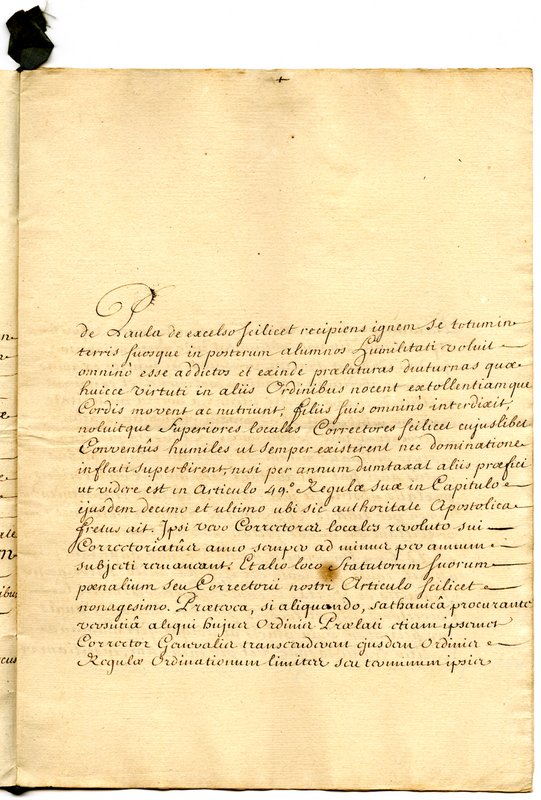 P.
de Paula de excelso scilicet recipiens ignem se totum in
terris suosque in posterum alumnos humilitati voluit
omninò esse addictos et exinde prælaturas diuturnas quæ
huicce virtuti in aliis Ordinibus nocent extollentiamque
Cordis movent ac nutriunt, filiis suis omninò interdixit,
noluitque Superiores locales Correctores scilicet cujuslibet
Conventûs humiles ut semper existerent nec dominatione
inflati superbirent, nisi per annum dumtaxat aliis præfici
ut videre est in Articulo 49.º Regulæ suæ in Capitulo
ejusdem decimo et ultimo ubi sic authoritate Apostolica
fretus ait. Ipsi vero Correctores locales revoluto sui
Correctoriatûs anno semper ad minus per annum
subjecti remaneant: Et alio loco Statutorum suorum
pœnalium seu Correctorii nostri Articulo scilicet
nonagesimo. Præterea, si aliquando, sathanicâ procurante
versutiâ aliqui hujus Ordinis Prælati etiam ipsemet
Corrector Generalis transcenderent ejusdem Ordinis
Regulæ Ordinationum limites seu terminum ipsis